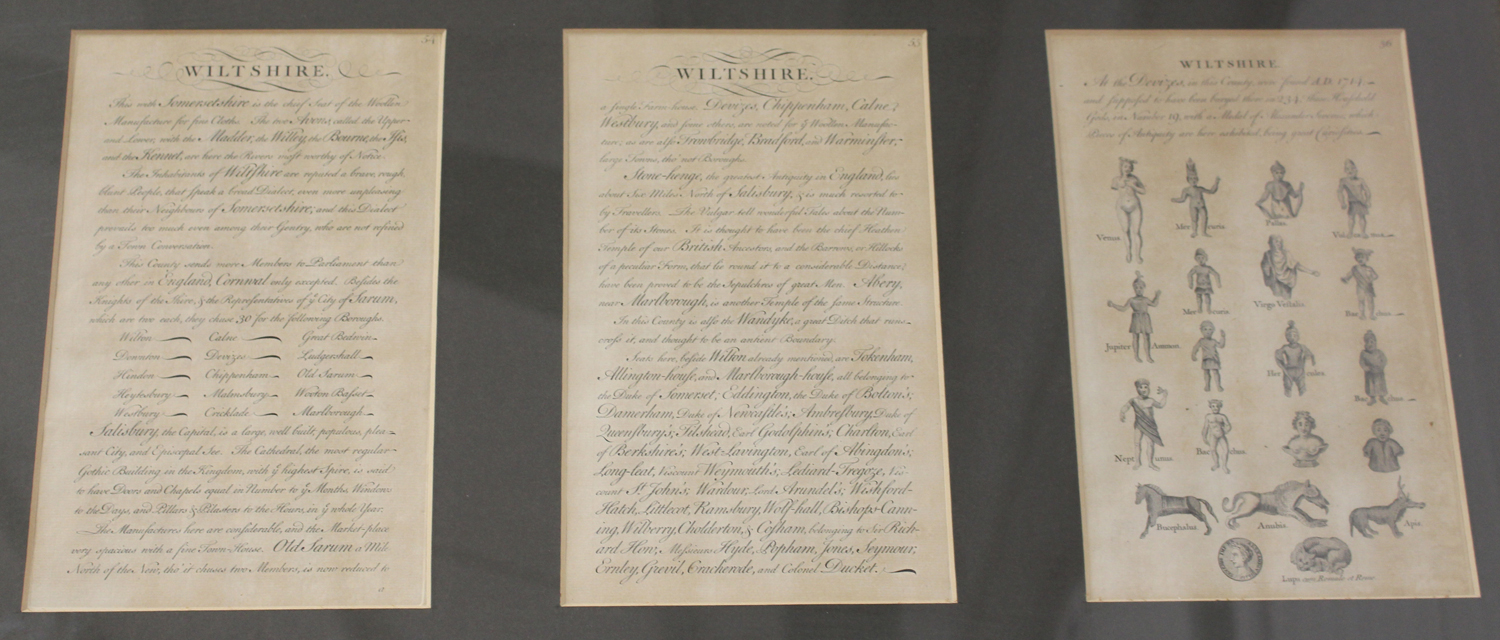 54
WILTSHIRE.
This with Somersetshire is the chief Seat of the Woollen
Manufacture for fine Cloths. The two Avons, called the Upper
and Lower, with the Madder, the Willey, the Bourne, the Isis,
and the Kennet, are here the Rivers most worthy of Notice.
The Inhabitants of Wiltshire are reputed a brave, rough,
blunt People, that speak a broad Dialect, even more unpleasing
than their Neighbours of Somersetshire; and this Dialect
prevails too much even among their Gentry, who are not refined
by a Town Conversation.
This County sends more Members to Parliament than
any other in England, Cornwal only excepted. Besides the
Knights of the Shire, & the Representatives of ye City of Sarum,
which are two each, they chose 30 for the following Boroughs.
Wilton Calne Great Bedwin
Downton Devizes Ludgershall
Hindon Chippenham Old Sarum
Heytesbury Malmsbury Wooton Basset
Westbury Cricklade Marlborough
Salisbury, the Capital, is a large, well built, populous, plea-
sant City, and Episcopal See. The Cathedral, the most regular
Gothic Building in the Kingdom, with ye highest Spire, is said
to have Doors and Chapels equal in Number to ye Months, Windows
to the Days, and Pillars & Pilasters to the Hours, in ye whole Year.
The Manufactures here are considerable, and the Market-place
very spacious with a fine Town-House. Old Sarum a Mile
North of the New, tho' it chuses two Members, is now reduced to
55
WILTSHIRE.
a single Farm house. Devizes, Chippenham, Calne,
Westbury, and some others, are noted for ye Woollen Manufac-
ture; as are also Trowbridge, Bradford, and Warminster,
large Towns, tho' not Boroughs.
Stone-henge, the greatest Antiquity in England, lies
about Six Miles North of Salisbury, & is much resorted to
by Travellers. The Vulgar tell wonderful Tales about the Num-
ber of its Stones. It is thought to have been the chief Heathen
Temple of our British Ancestors, and the Barrows, or Hillocks
of a peculiar Form, that lie round it to a considerable Distance,
have been proved to be the Sepulchres of great Men. Abery,
near Marlborough, is another Temple of the same Structure.
In this County is also the Wandyke, a great Ditch that runs
cross it, and thought to be an antient Boundary.
Seats here, beside Wilton already mentioned, are Tokenham,
Allington-house, and Marlborough-house, all belonging to
the Duke of Somerset; Eddington, the Duke of Bolton's;
Damerham, Duke of Newcastle's; Ambresbury, Duke of
Queensbury's; Tilshead, Earl Godolphin's; Charlton, Earl
of Berkshire's; West-Lavington, Earl of Abingdon's;
Long-leat, Viscount Weymouth's; Lediard-Tregoze, Vis-
count St. John's; Wardour, Lord Arundel's; Wishford-
Hatch, Littlecot, Ramsbury, Wolf-hall, Bishops-Cann-
ing, Wilberry, Cholderton, & Cosham, belonging to Sir Rich-
ard How, Messieurs Hyde, Popham, Jones, Seymour,
Ernley, Grevil, Crackerode, and Colonel Ducket.
56
WILTSHIRE.
At the Devizes, in this County, were found A.D. 1714
and supposed to have been buryed there in 234, these Houshold
Gods, in Number 19, with a Medal of Alexander Severus, which
Pieces of Antiquity are here exhibited, being great Curiosities.
Venus
Mercurius
Pallas
Vulcanus
Jupiter Ammon
Mercurius
Virgo Vestalis
Bacchus
Hercules
Bacchus
Neptunus
Bacchus
Bucephalus
Anubis
Apis
Lupa cum Romulo et Remo